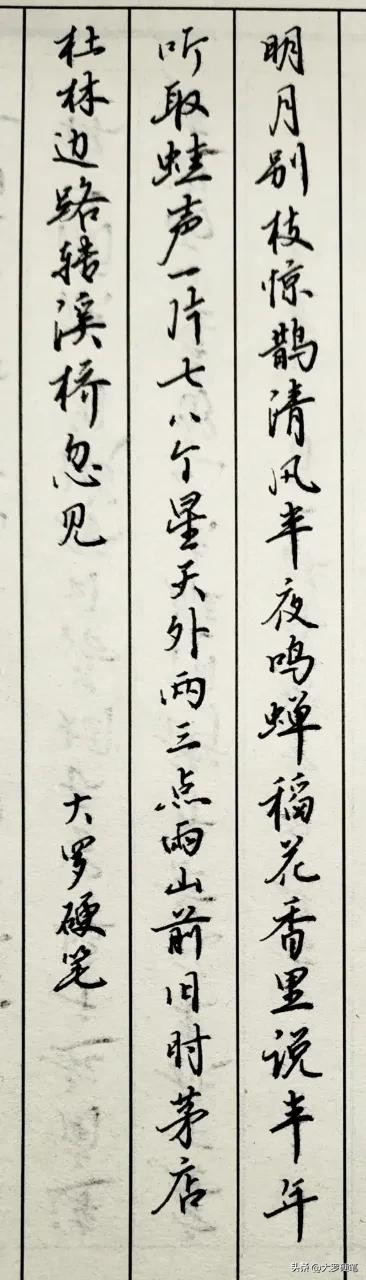 明月别枝惊鹊清风半夜鸣蝉稻花香里说丰年
听取蛙声一片七八个星天外两三点雨山前旧时茅店
杜林边路转溪桥忽见
大罗硬笔
头条@大罗硬笔